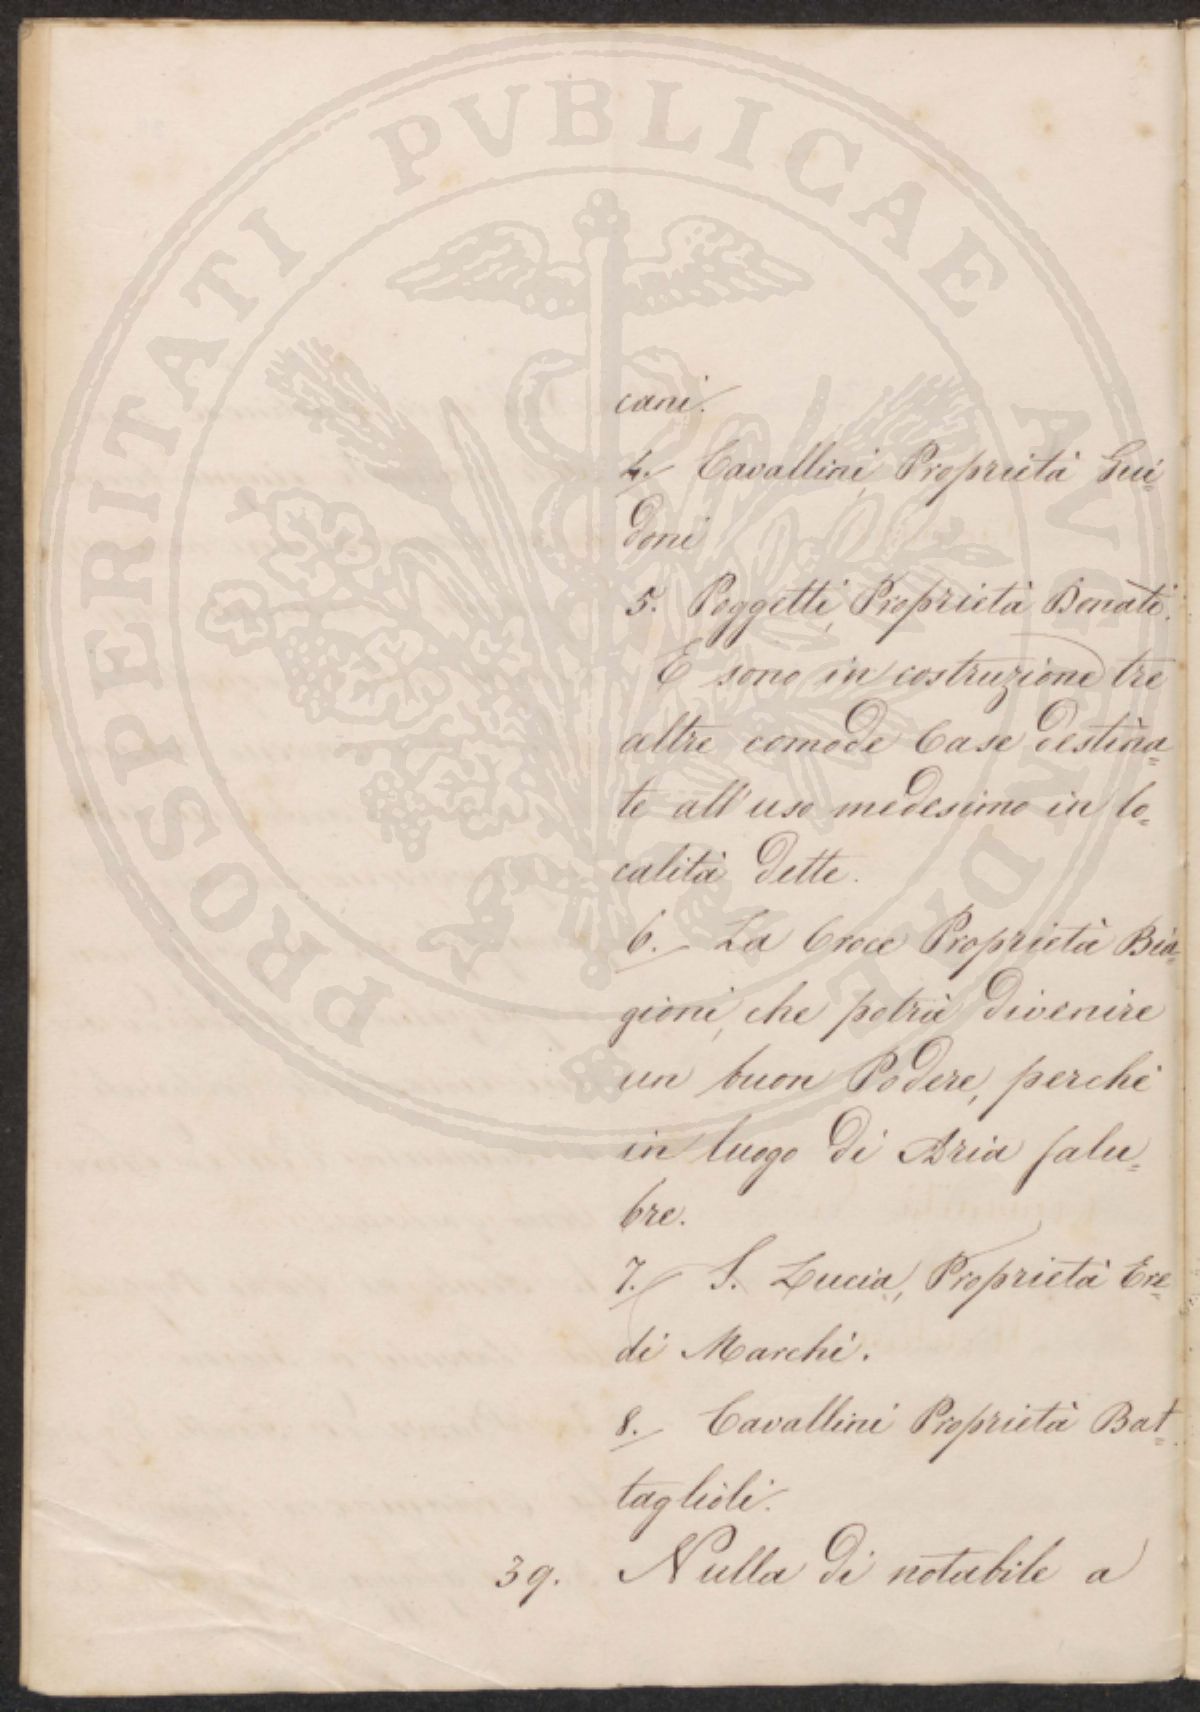 PROSPERITATI PVBLICAE AVGENDAE
cani.
4. Cavallini, Proprietà Gui=
doni
5. Poggetti, Proprietà Bonati.
E sono in costruzione tre
altre comode Case destina=
te all'uso medesimo in lo=
calità dette.
6. La Croce Proprietà Bia=
gioni, che potrà divenire
un buon Podere, perchè
in luogo di Aria salu=
bre.
7. S. Lucia, Proprietà Ere=
di Marchi.
8. Cavallini Proprietà Bat=
taglioli.
39. Nulla di notabile a